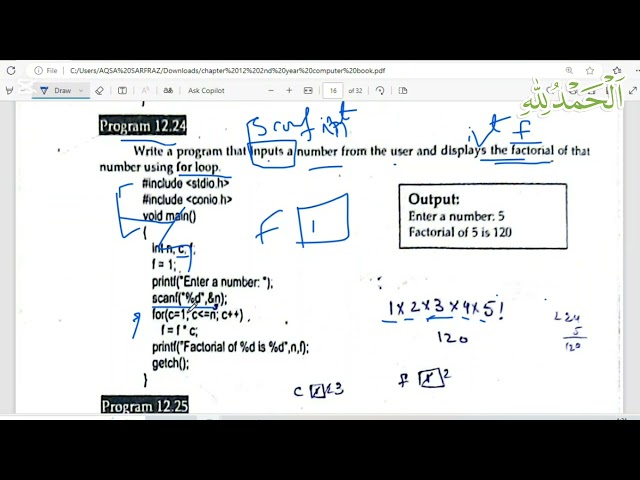 C:/Users/AQSA%20SARFRAZ/Downloads/chapter%2012%202nd%20year%20computer%20book.pdf
Draw
Ask Copilot
16
of 32
اَلْحَمْدُلِلّٰهِ
Program 12.24
Scanf
int f
Write a program that inputs a number from the user and displays the factorial of that
number using for loop.
#include <stdio.h>
#include <conio.h>
void main()
{
int n, c, f;
f = 1;
printf("Enter a number: ");
scanf("%d",&n);
for(c=1; c<=n; c++)
f = f * c;
printf("Factorial of %d is %d",n,f);
getch();
}
F 1
Output:
Enter a number: 5
Factorial of 5 is 120
1 x 2 x 3 x 4 x 5!
120
5
120
C 1 2 3
F 1 2
Program 12.25